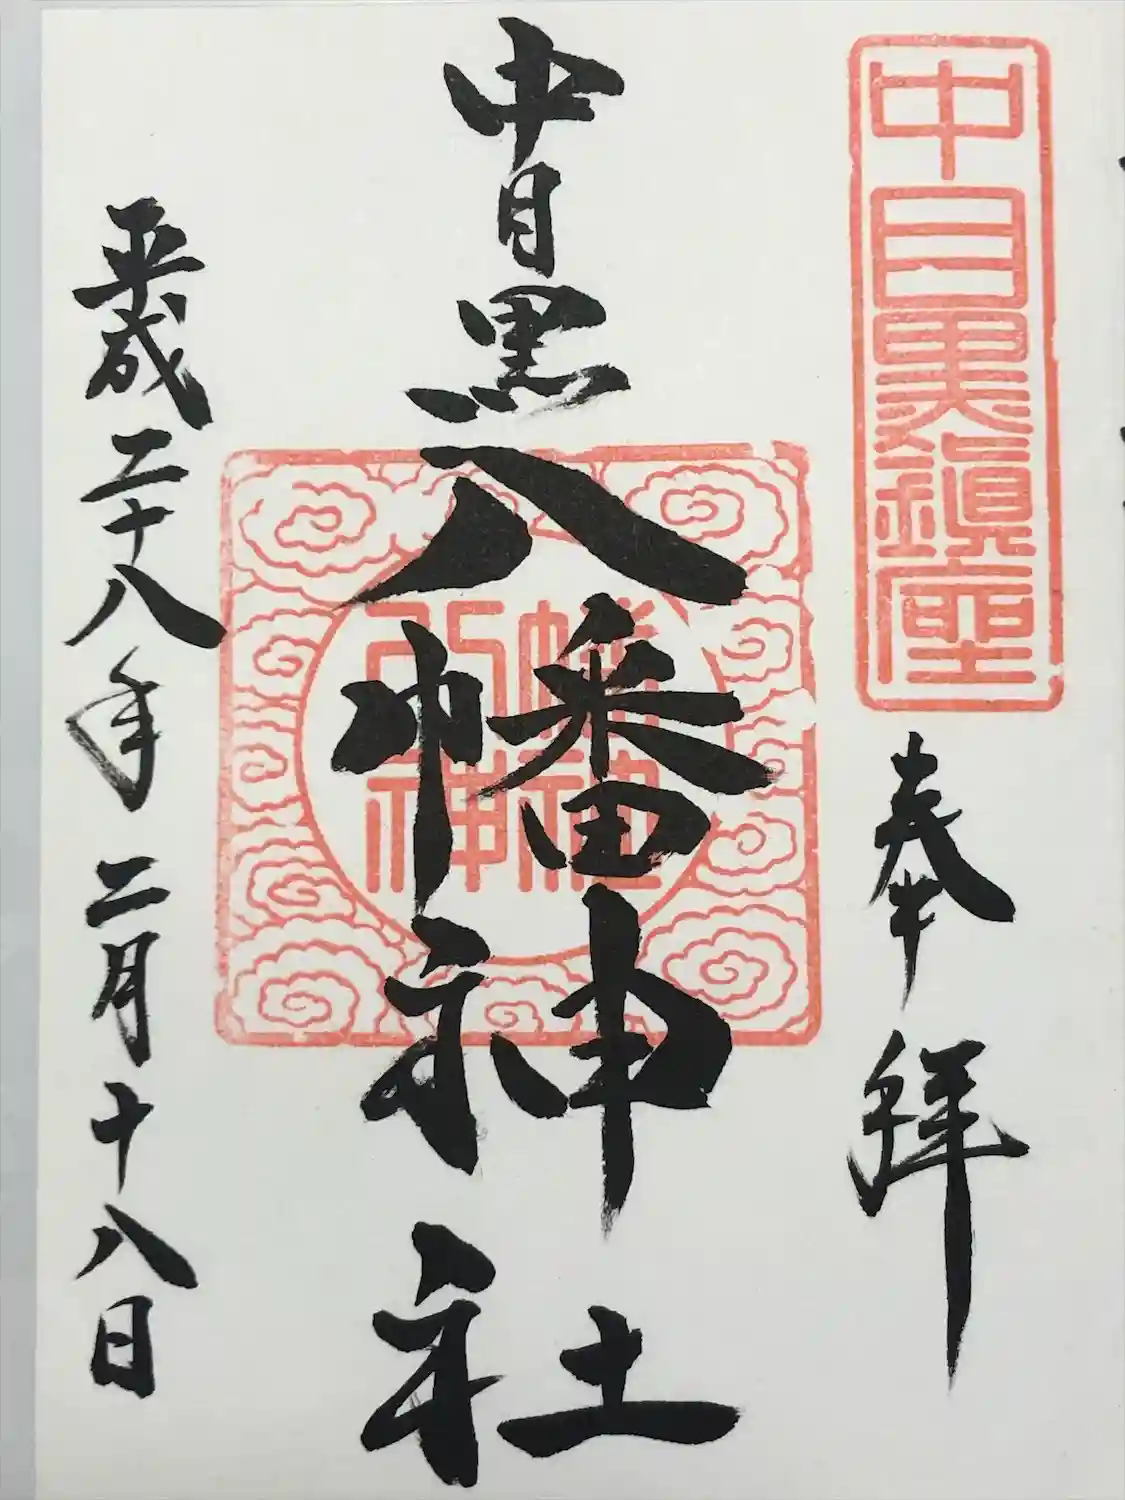 中目黒鎮座
奉拝
中目黒
八幡神社
平成二十八年二月十八日